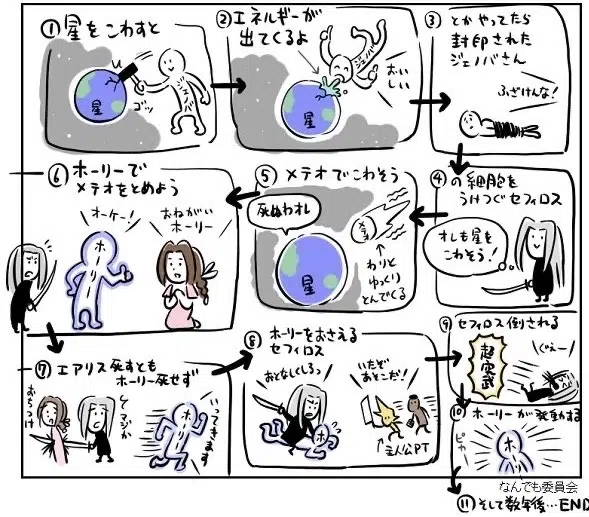 ①星をこわすと
星
ゴッ
ジェノバ
②エネルギーが
出てくるよ
ジェノバ
おいしい
星
③とかやってたら
封印された
ジェノバさん
ふざけんな!
④の細胞を
うけつぐセフィロス
オレも星を
こわそう!
⑤メテオでこわそう
死ぬわオレ
メテオ
星
わりと
ゆっくり
とんでくる
⑥ホーリーで
メテオをとめよう
オーケー!
おねがい
ホーリー
ホーリー
⑦エアリス死すとも
ホーリー死せず
おちつけ
マジか
ホーリー
いってきます
⑧ホーリーをおさえる
セフィロス
おとなしくしろ
ホ
いたぞ
あそこだ!
主人公PT
⑨セフィロス倒される
超究武
ぐえー
⑩ホーリーが発動する
ピカー
ホーリ
なんでも委員会
⑪そして数年後…END